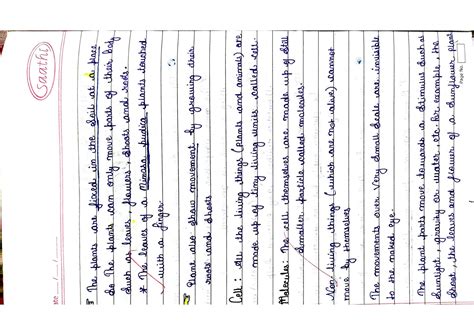 saathi
Date ___/___/___
The plants are fixed in the soil at a place
So the plants can only move parts of their body
such as leaves, flowers, shoots and roots.
* The leaves of a Mimosa pudica plants touched
with a finger.
Plant also show movement by growing their
roots and shoots
Cell: All the living things (plants and animals) are
made up of tiny living units called cell.
Molecules: The cell themselves are made up of still
smaller particle called molecules.
Non living things (which are not alive) cannot
move by themselves
The movements over very small scale are invisible
to the naked eye.
The plant parts move towards a stimulus such as
sunlight, gravity or water, etc. For example, the
shoot, the leaves and flower of a sunflower plant
Page No.